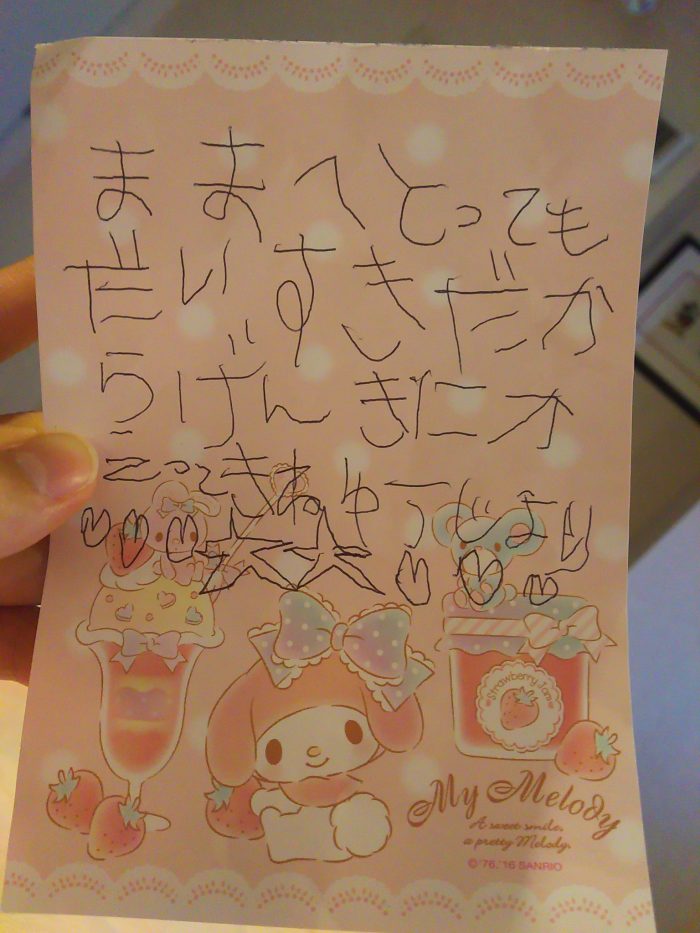 ままへとっても
だいすきだか
らげんきにか
えってきね ゆうじより
Strawberry Jam
My Melody
A sweet smile,
a pretty Melody.
© '76,'16 SANRIO